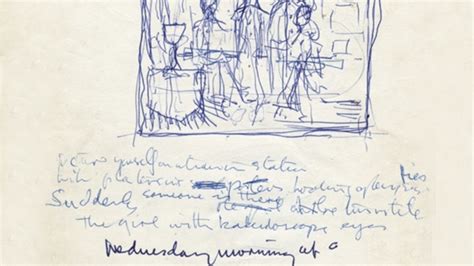 Picture yourself on a train in a station
with plasticine porters looking glass ties
Suddenly someone is there at the turnstile
The girl with kaleidoscope eyes
Wednesday morning at